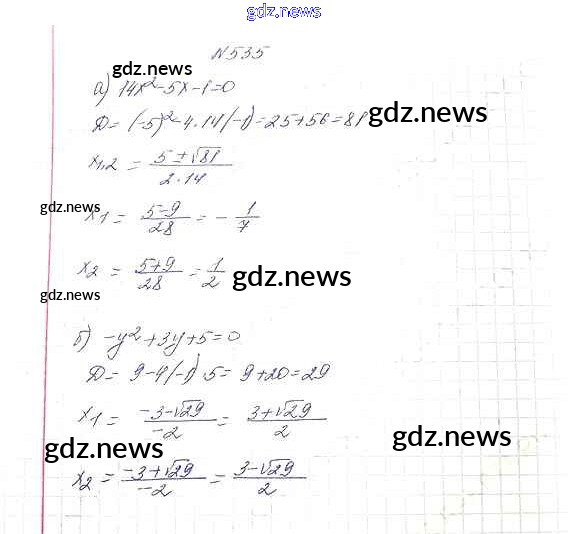 gdz.news
N 535
gdz.news
а) 14x² - 5x - 1 = 0
D = (-5)² - 4 · 14 (-1) = 25 + 56 = 81
gdz.news
x1,2 = (5 ± √81) / (2 · 14)
gdz.news
x1 = (5 - 9) / 28 = - 1/7
x2 = (5 + 9) / 28 = 1/2
gdz.news
gdz.news
б) -y² + 3y + 5 = 0
D = 9 - 4 (-1) 5 = 9 + 20 = 29
x1 = (-3 - √29) / -2 = (3 + √29) / 2
gdz.news
gdz.news
x2 = (-3 + √29) / -2 = (3 - √29) / 2